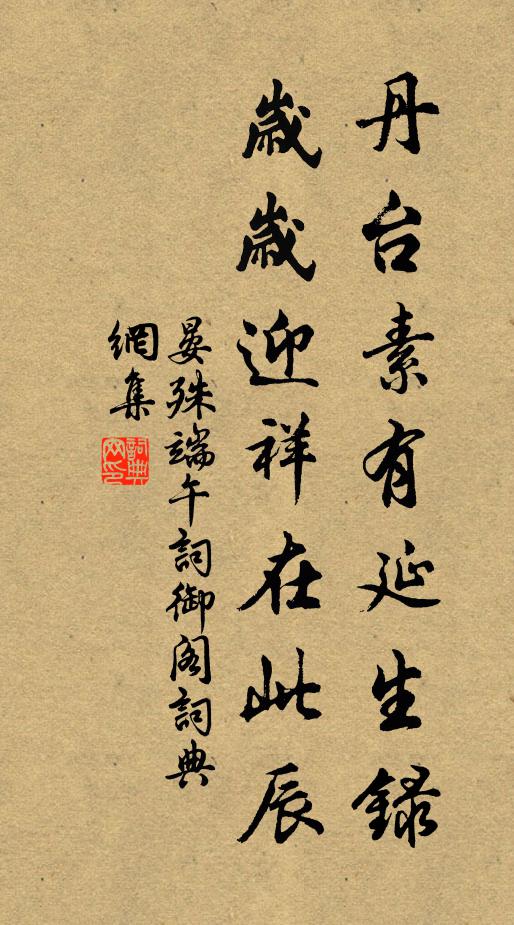 丹台素有延生錄
歲歲迎祥在此辰
晏殊端午詞御閣詞典
網集
詞典网印